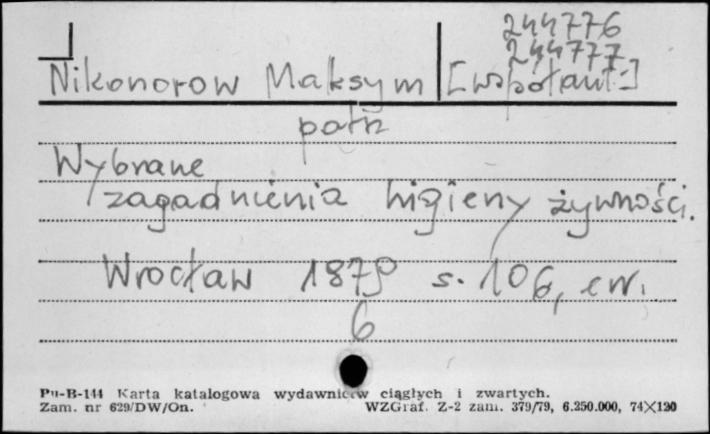 244776
244777
Nikonorow Maksym [współaut.]
patrz
Wybrane
zagadnienia higieny żywności.
Wrocław 1879 s. 106,
6
Pu-B-144 Karta katalogowa wydawnictw ciągłych i zwartych.
Zam. nr 629/DW/On. WZGraf. Z-2 zam. 379/79, 6.250.000, 74×120